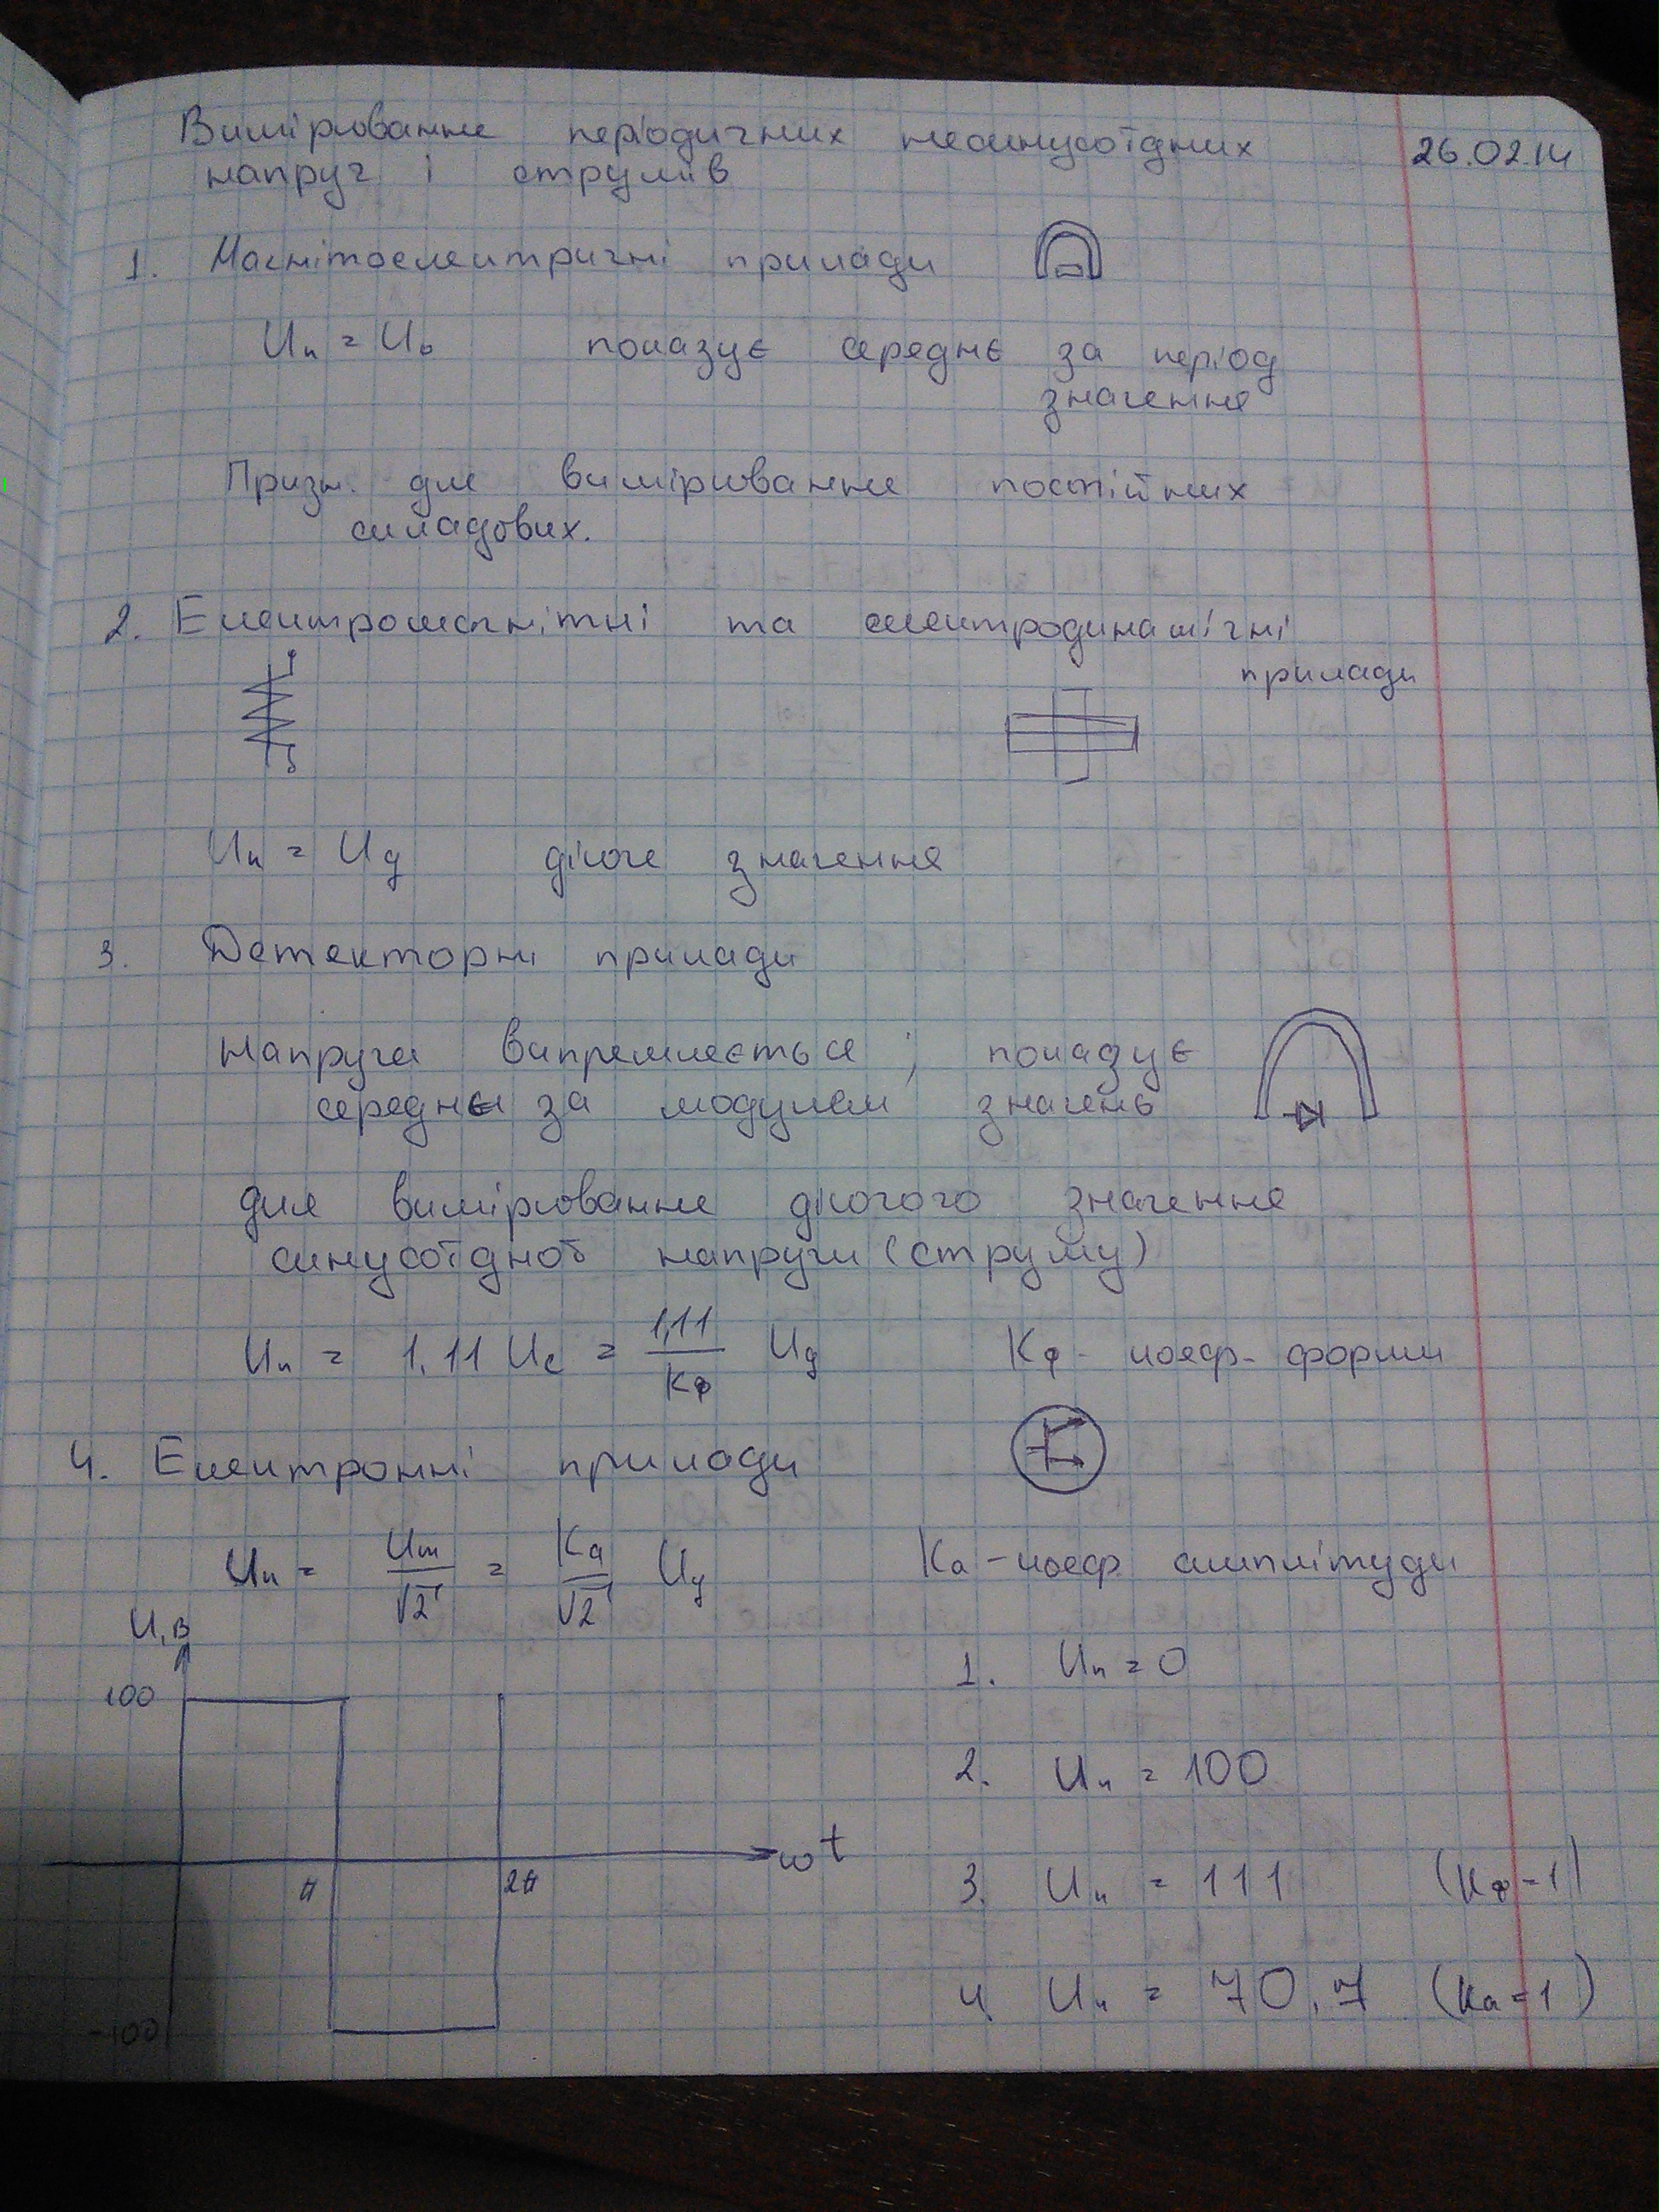 Вимірювання періодичних несинусоїдних 26.02.14
напруг і струмів
1. Магнітоелектричні прилади
Uп = U₀ показує середнє за період
значення
Призн. для вимірювання постійних
складових.
2. Електромагнітні та електродинамічні
прилади
Uп = Uд діюче значення
3. Детекторні прилади
Напруга випрямляється; показує
середнє за модулем значень
для вимірювання діючого значення
синусоїдної напруги (струму)
Uп = 1,11 Uс = 1,11/Kф Uд Kф - коеф. форми
4. Електронні прилади
Uп = Um/√2 = Ka/√2 Uд Ka - коеф. амплітуди
U,В
100
-100
π
2π
ωt
1. Uп = 0
2. Uп = 100
3. Uп = 111 (Kф=1)
4. Uп = 70,7 (Ka=1)